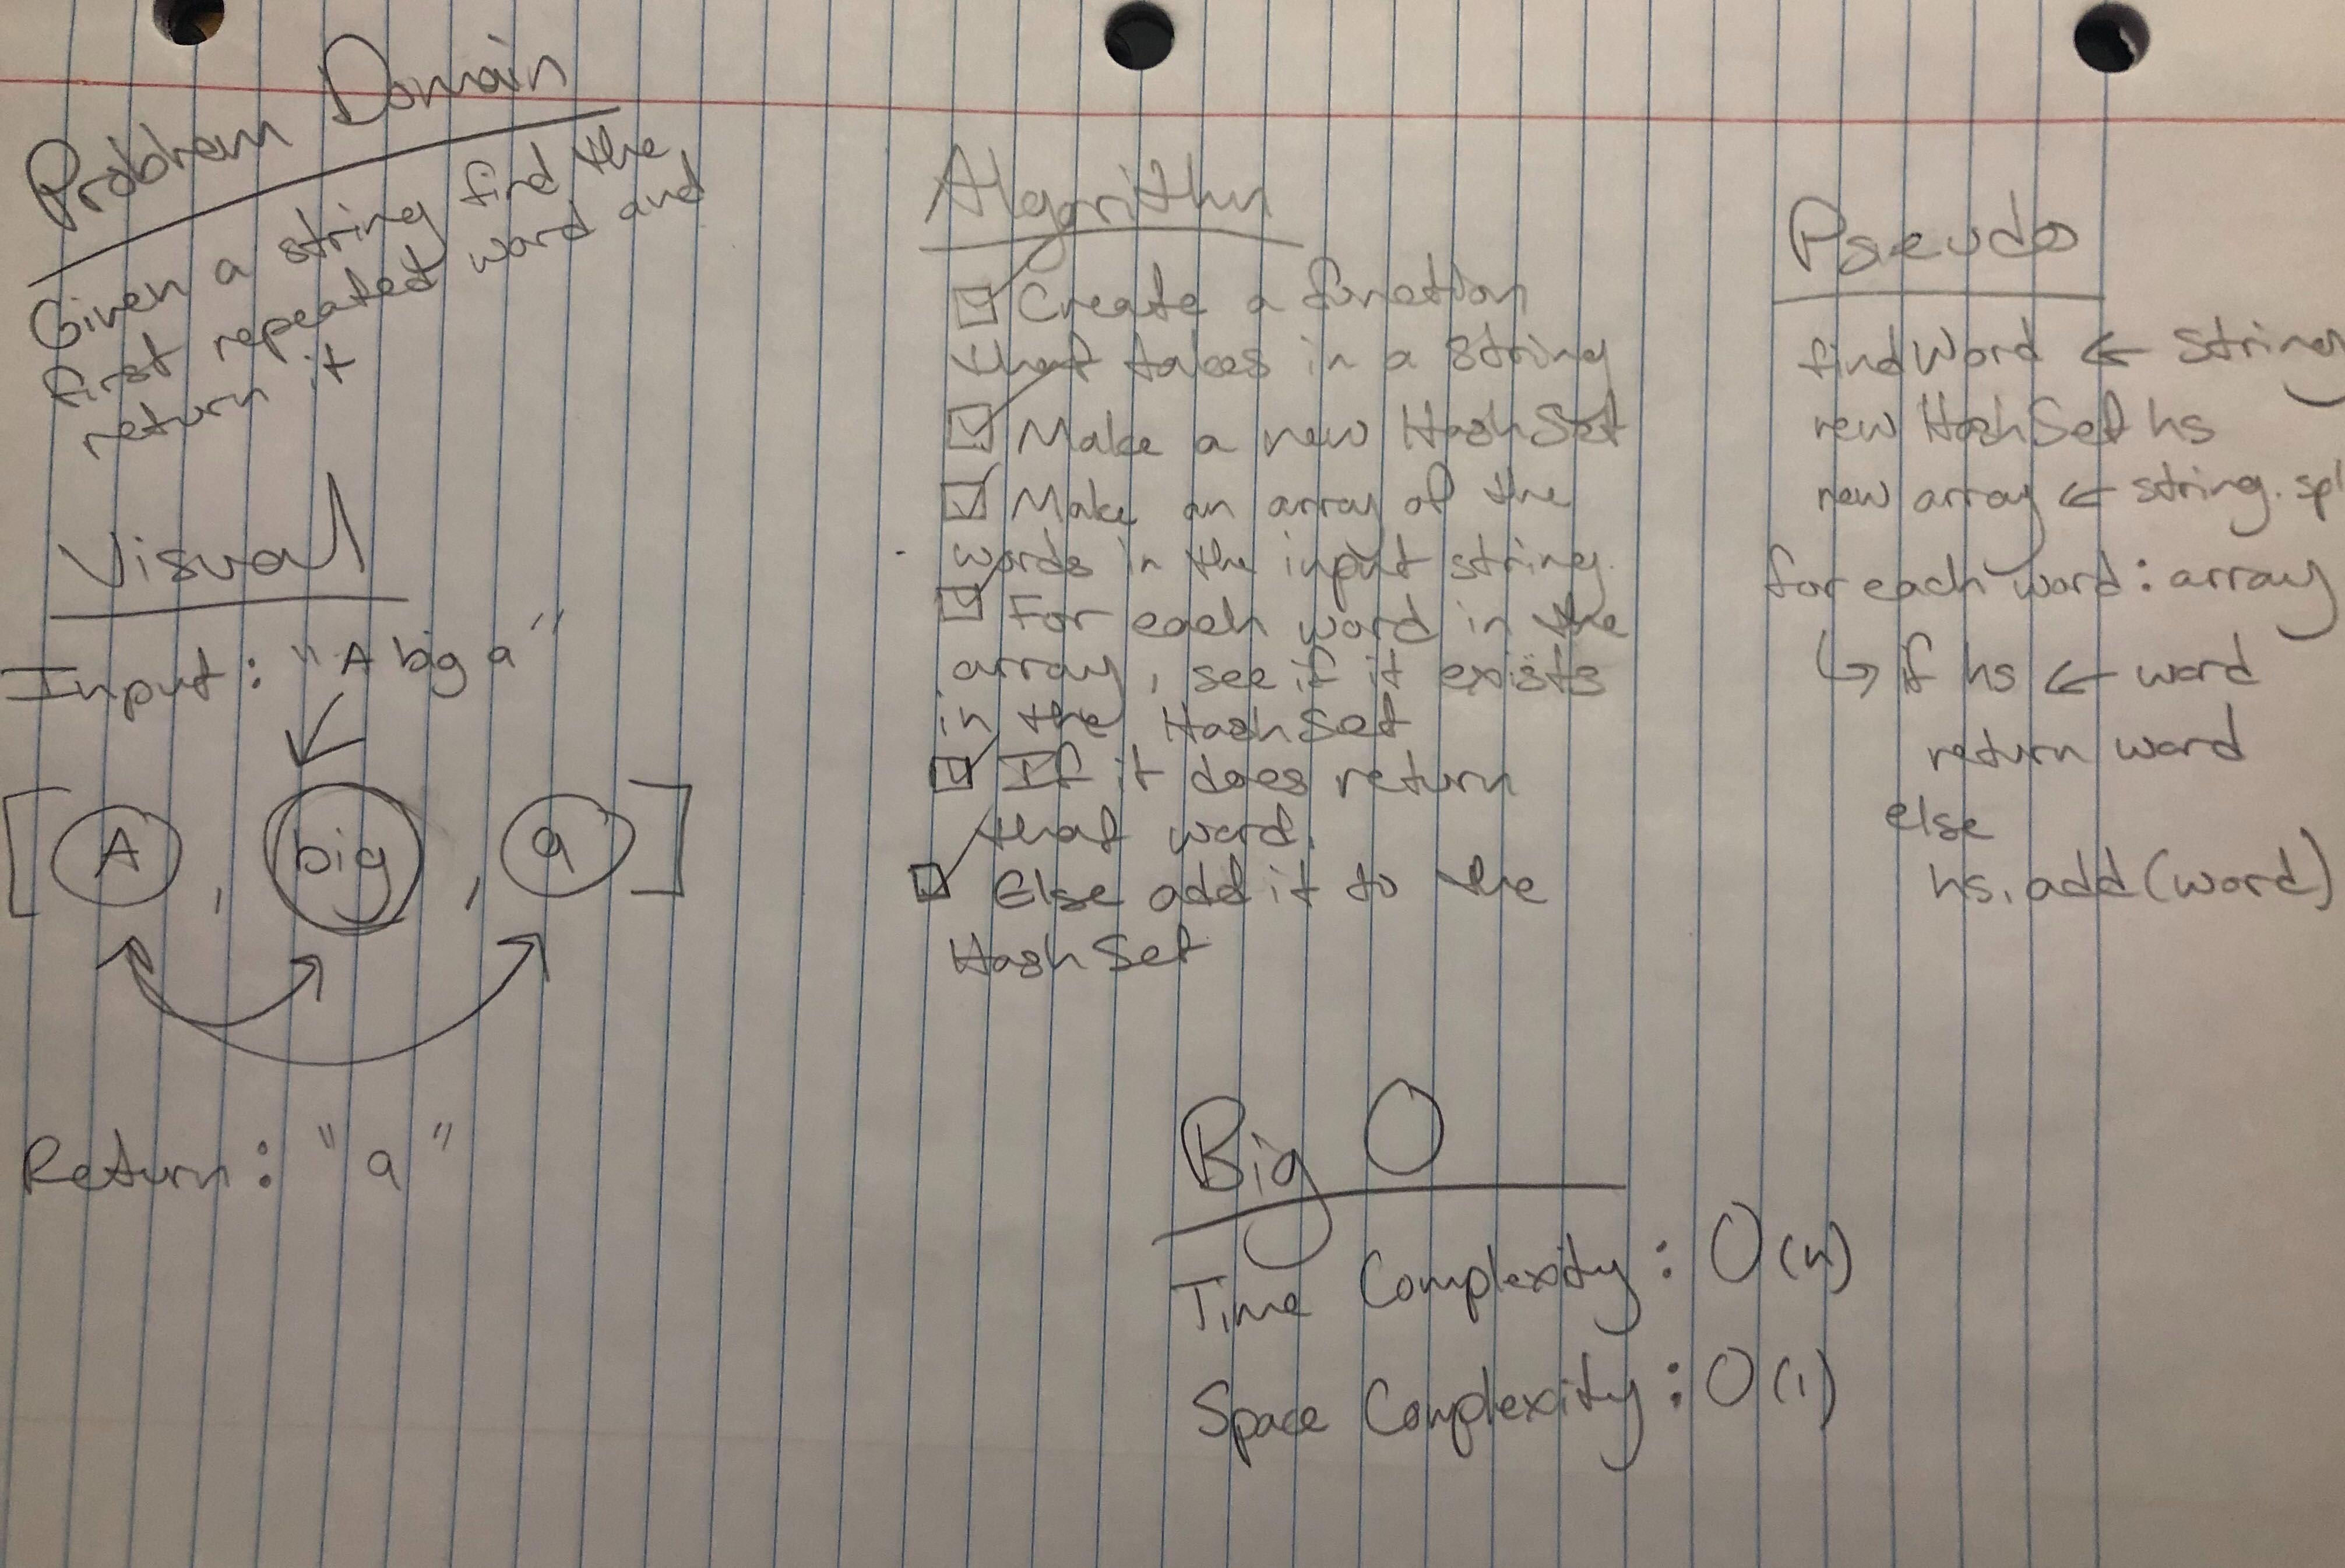 Problem Domain
Given a string find the
first repeated word and
return it
Visual
Input: "A big a"
[A, big, a]
Return: "a"
Algorithm
Create a function
that takes in a string
Make a new HashSet
Make an array of the
words in the input string.
For each word in the
array, see if it exists
in the HashSet
If it does return
that word.
Else add it to the
HashSet
Pseudo
findWord ← string
new HashSet hs
new array ← string.spl
for each word: array
↳ if hs ← word
return word
else
hs.add(word)
Big O
Time Complexity: O(n)
Space Complexity: O(1)